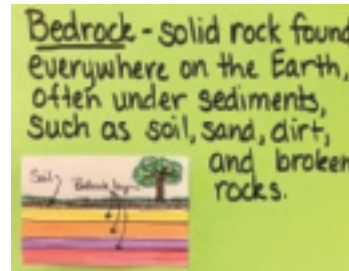 Bedrock - solid rock found
everywhere on the Earth,
often under sediments,
such as soil, sand, dirt,
and broken
rocks.
Soil
Bedrock layers